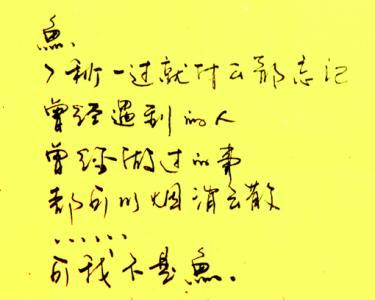 鱼.
7秒一过就什么都忘记
曾经遇到的人
曾经做过的事
都可以烟消云散
......
可我不是鱼.